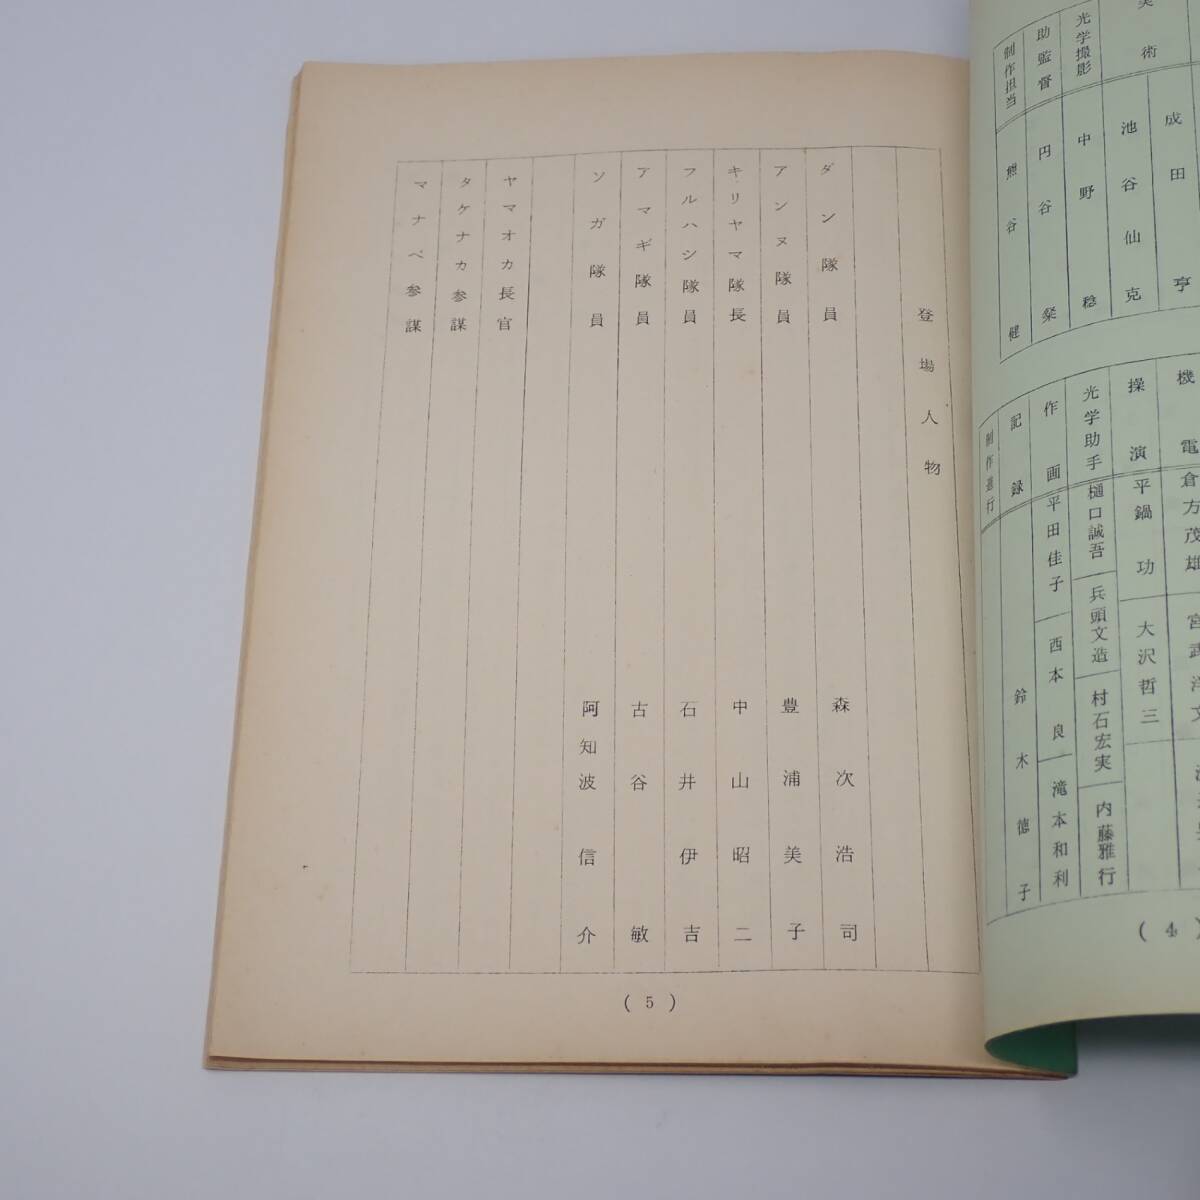 美術
成田亨
池谷仙克
光学撮影
中野稔
助監督
円谷粲
制作担当
熊谷健
機電
倉方茂雄
操演
平鍋功
大沢哲三
光学助手
樋口誠吾
兵頭文造
村石宏実
内藤雅行
作画
平田佳子
西本良
滝本和利
記録
鈴木徳子
制作進行
(4)
登場人物
ダン隊員 森次浩司
アンヌ隊員 豊浦美子
キリヤマ隊長 中山昭二
フルハシ隊員 石井伊吉
アマギ隊員 古谷敏
ソガ隊員 阿知波信介
ヤマオカ長官
タケナカ参謀
マナベ参謀
(5)